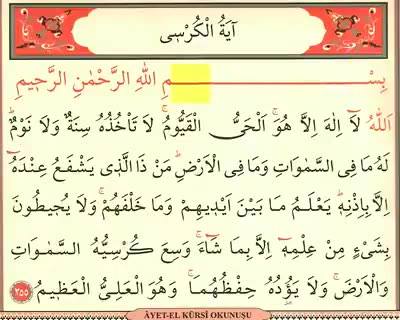 اٰيَةُ الْكُرْسٖى
بِسْمِ اللّٰهِ الرَّحْمٰنِ الرَّحٖيمِ
اَللّٰهُ لَٓا اِلٰهَ اِلَّا هُوَۚ اَلْحَىُّ الْقَيُّومُۚ لَا تَاْخُذُهُ سِنَةٌ وَلَا نَوْمٌؕ
لَهُ مَا فِى السَّمٰوَاتِ وَمَا فِى الْاَرْضِؕ مَنْ ذَا الَّذٖى يَشْفَعُ عِنْدَهُٓ
اِلَّا بِاِذْنِهٖؕ يَعْلَمُ مَا بَيْنَ اَيْدٖيهِمْ وَمَا خَلْفَهُمْۚ وَلَا يُحٖيطُونَ
بِشَىْءٍ مِنْ عِلْمِهٖٓ اِلَّا بِمَا شَٓاءَۚ وَسِعَ كُرْسِيُّهُ السَّمٰوَاتِ
وَالْاَرْضَۚ وَلَا يَؤُ۫دُهُ حِفْظُهُمَاۚ وَهُوَ الْعَلِىُّ الْعَظٖيمُ ﴿٢٥٥﴾
ÂYET-EL KÜRSİ OKUNUŞU